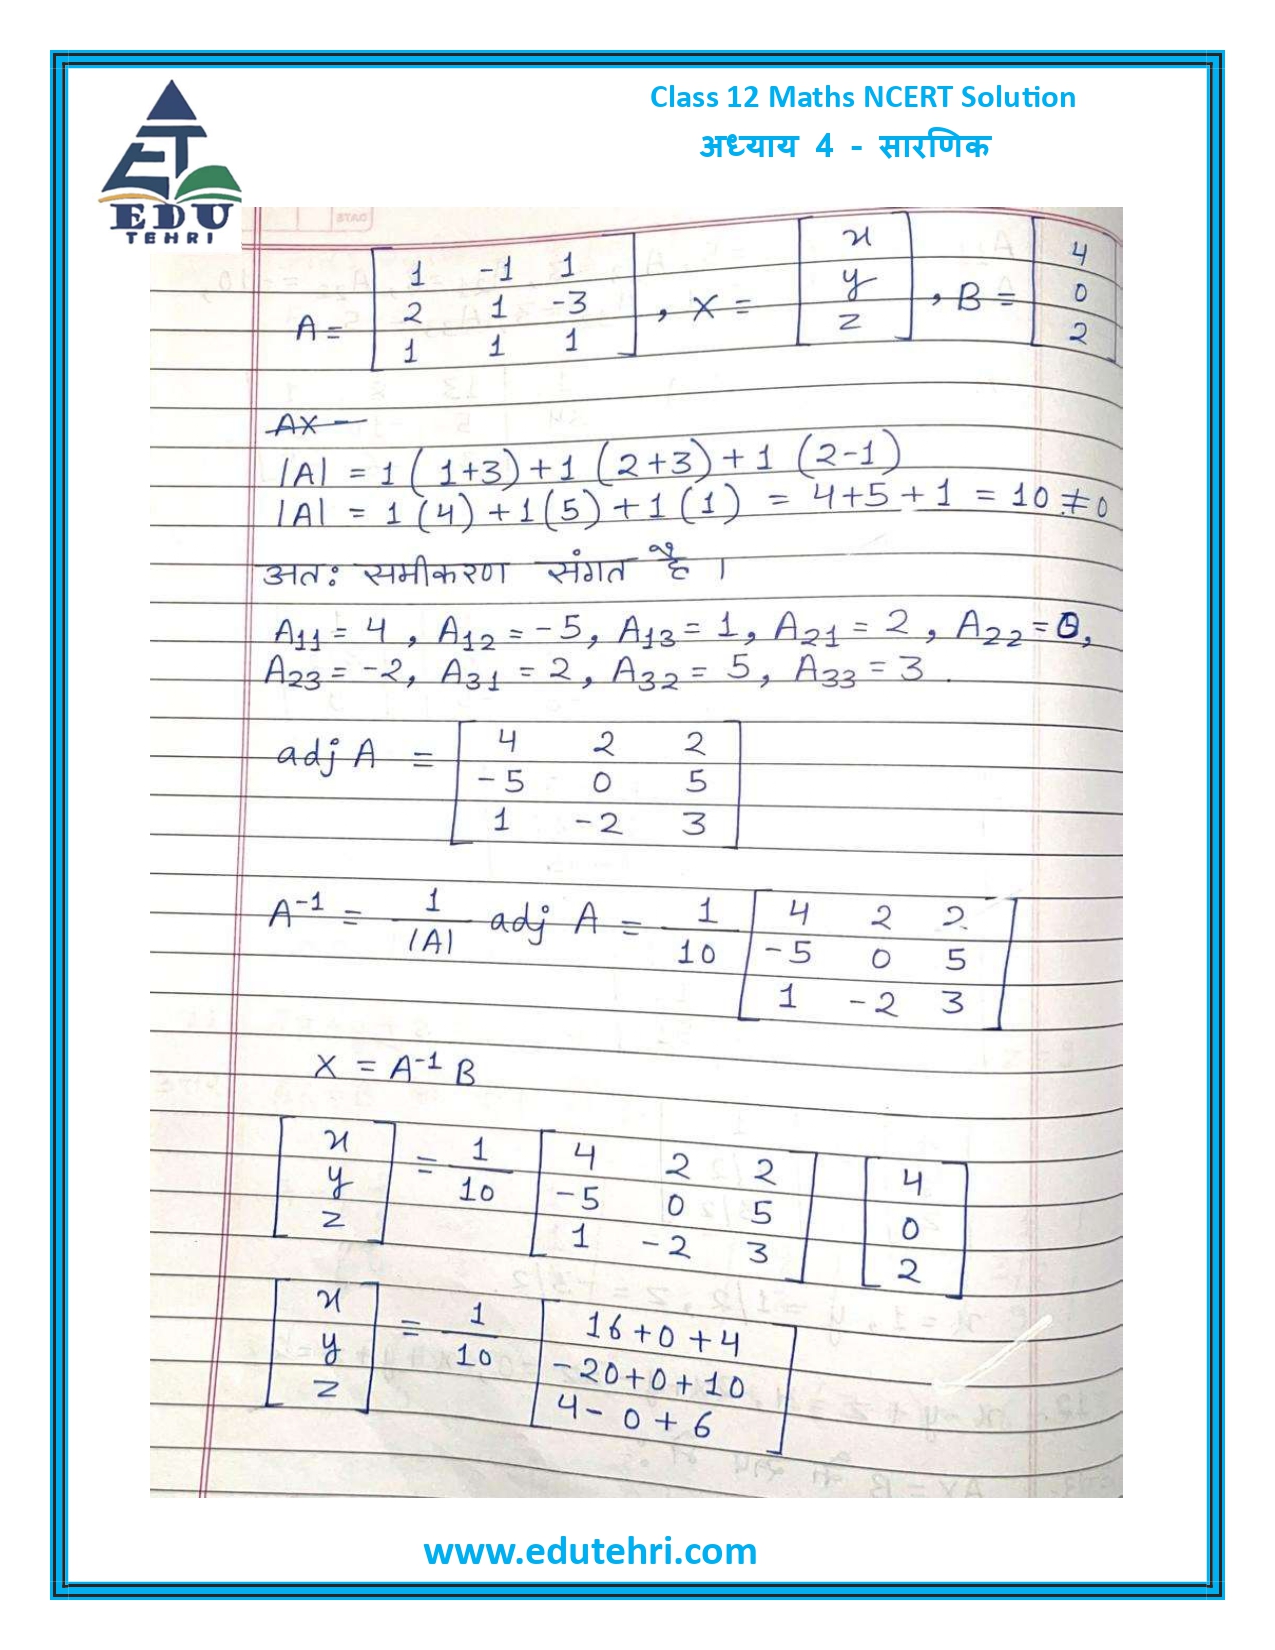 Class 12 Maths NCERT Solution
अध्याय 4 - सारणिक
EDU
TEHRI
A = [1 -1 1; 2 1 -3; 1 1 1], X = [x; y; z], B = [4; 0; 2]
AX =
|A| = 1(1+3)+1(2+3)+1(2-1)
|A| = 1(4)+1(5)+1(1) = 4+5+1 = 10 ≠ 0
अतः समीकरण संगत है ।
A11 = 4, A12 = -5, A13 = 1, A21 = 2, A22 = 0,
A23 = -2, A31 = 2, A32 = 5, A33 = 3.
adj A = [4 2 2; -5 0 5; 1 -2 3]
A⁻¹ = 1/|A| adj A = 1/10 [4 2 2; -5 0 5; 1 -2 3]
X = A⁻¹ B
[x; y; z] = 1/10 [4 2 2; -5 0 5; 1 -2 3] [4; 0; 2]
[x; y; z] = 1/10 [16+0+4; -20+0+10; 4-0+6]
www.edutehri.com